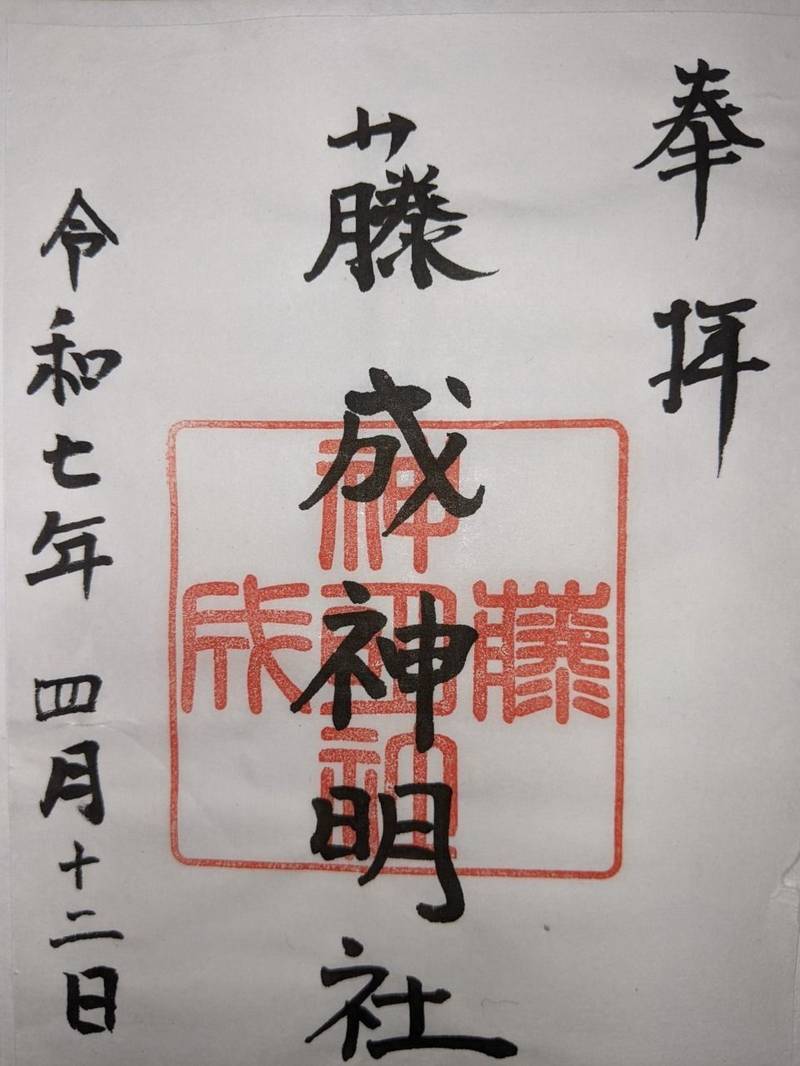 奉拝
藤成神明社
令和七年 四月十二日
藤
神明社
成